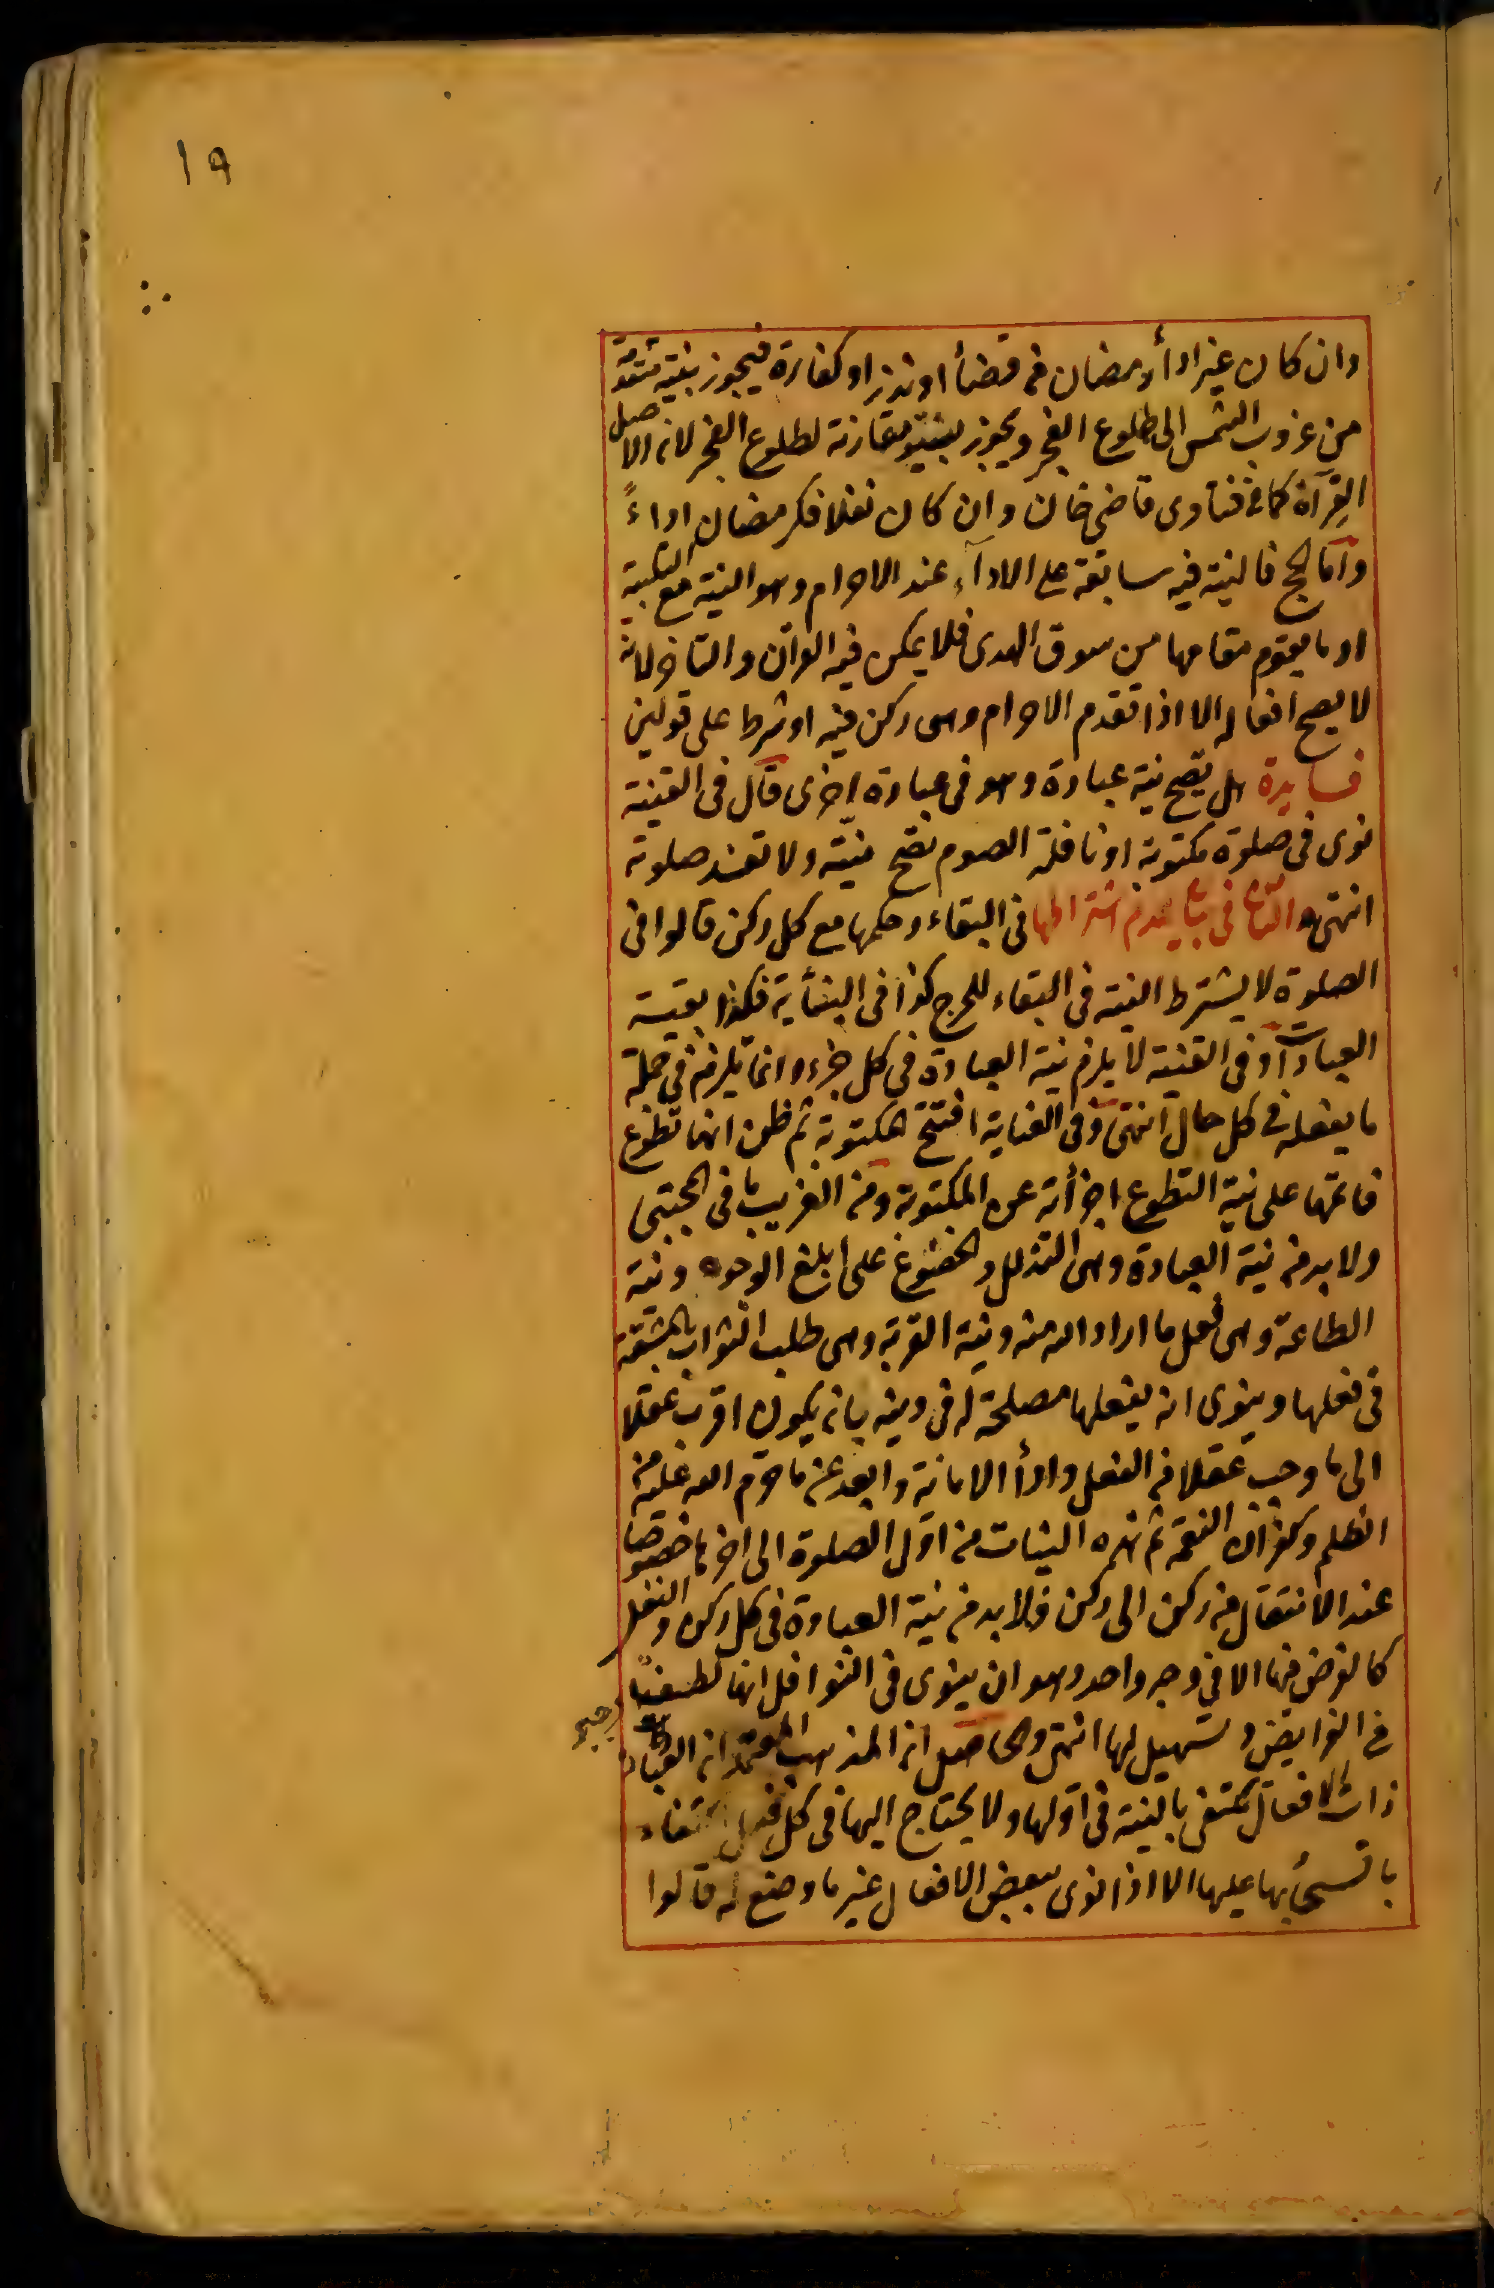 ١٩
وان كان غير اداء رمضان من قضأ او نذر او كفارة فيجوز بنية متقدمة
من غروب الشمس الى طلوع الفجر ويجوز بنية مقارنة لطلوع الفجر لانه الاصل
القرآن كما فى فتاوى قاضى خان وان كان نفلا فكرمضان اداءً
واما الحج فالنية فيه سابقة على الادآء عند الاحرام وهو النية مع التلبية
او ما يقوم مقامها من سوق الهدى فلا يمكن فيه القرآن والتاخر لانه
لا يصح افعاله الا اذا تقدم الاحرام وهى ركن فيه او شرط على قولين
فايدة هل تصح نية عبادة وهو فى عبادة اخرى قال فى القنية
نوى فى صلوة مكتوبة او نافلة الصوم تصح نيته ولا تفسد صلوته
انتهى والتاسع فى بيان عدم اشتراطها فى البقاء وحكمها مع كل ركن قالوا فى
الصلوة لا يشترط النية فى البقاء للحرج كذا فى البنأية فكذا بقية
العبادات وفى القنية لا يلزم نية العبادة فى كل جزء وانما يلزم فى جملة
ما يفعله فى كل حال انتهى وفى الغناية افتتح المكتوبة ثم ظن انها تطوع
فاتمها على نية التطوع اجزأته عن المكتوبة ومن الغريب ما فى المجتبى
ولا بد من نية العبادة وهى التذلل والخضوع على ابلغ الوجوه ونية
الطاعة وهى فعل ما اراد الله منه ونية القربة وهى طلب الثواب بالمشقة
فى فعلها وينوى انه يفعلها مصلحة له فى دينه بانه يكون اقرب عقلا
الى ما وجب عقلا من الفعل وادأ الامانة وابعد عن ما حرم الله عليه من
الظلم وكفران النعمة ثم هذه النيات من اول الصلوة الى اخرها خصوصا
عند الانتقال من ركن الى ركن فلا بد من نية العبادة فى كل ركن والنفل
كالفرض فيها الا فى وجه واحد وهو ان ينوى فى النوافل انها لطف
فى الفرايض وتسهيل لها انتهى والحاصل ان المذهب المعتمد ان العبادة
ذات الافعال يكتفى بالنية فى اولها ولا يحتاج اليها فى كل فعل اكتفاء
بانسحابها عليها الا اذا نوى ببعض الافعال غير ما وضع له قالوا